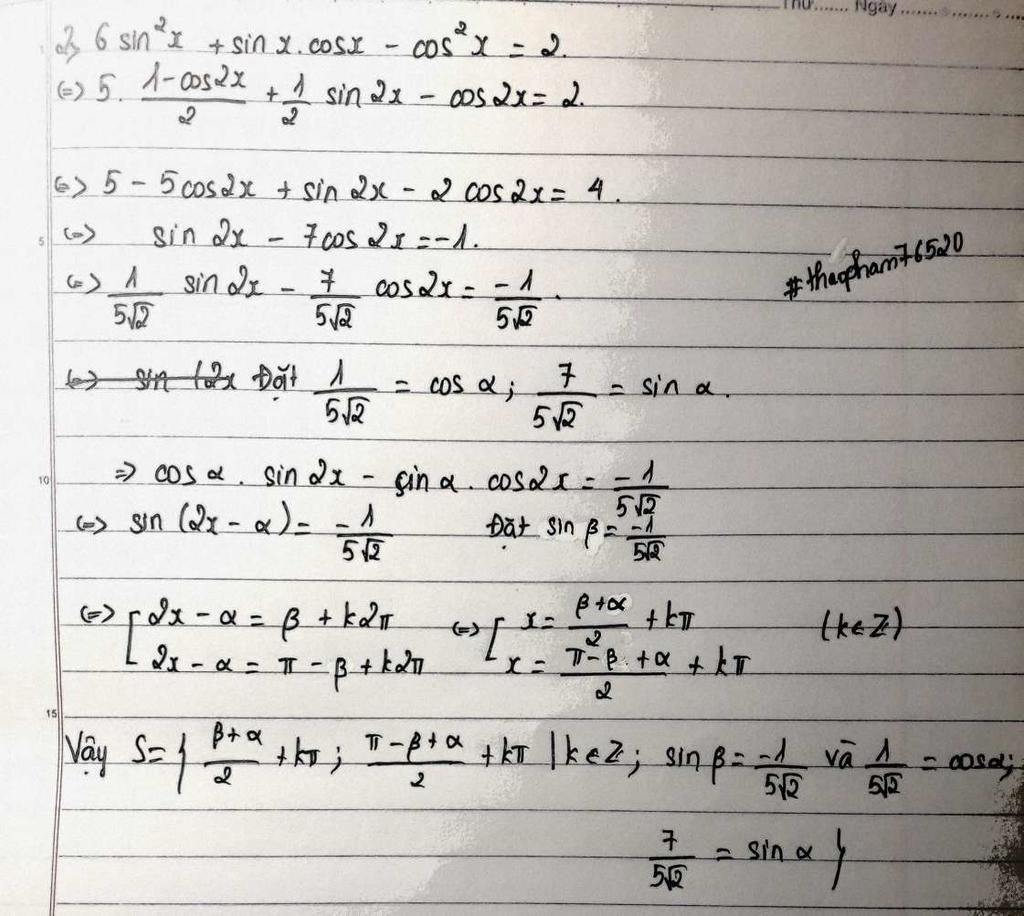 Thứ....... Ngày...............
2, 6 sin²x + sin x . cosx - cos²x = 2.
(=) 5 . (1-cos2x)/2 + 1/2 sin 2x - cos 2x = 2.
(=) 5 - 5cos2x + sin 2x - 2 cos 2x = 4.
5 (=) sin 2x - 7cos 2x = -1.
(=) 1/(5√2) sin 2x - 7/(5√2) cos2x = -1/(5√2) .
#thaopham76520
(=) sin (2x Đặt 1/(5√2) = cos α ; 7/(5√2) = sin α .
10 => cos α . sin 2x - sin α . cos2x = -1/(5√2)
(=) sin (2x - α) = -1/(5√2) Đặt sin β = -1/(5√2)
(=) [ 2x - α = β + k2π (=) [ x = (β+α)/2 + kπ (k∈Z)
2x - α = π - β + k2π x = (π-β+α)/2 + kπ
15
Vậy S = { (β+α)/2 + kπ ; (π-β+α)/2 + kπ | k∈Z ; sin β = -1/(5√2) và 1/(5√2) = cosα ;
7/(5√2) = sin α }